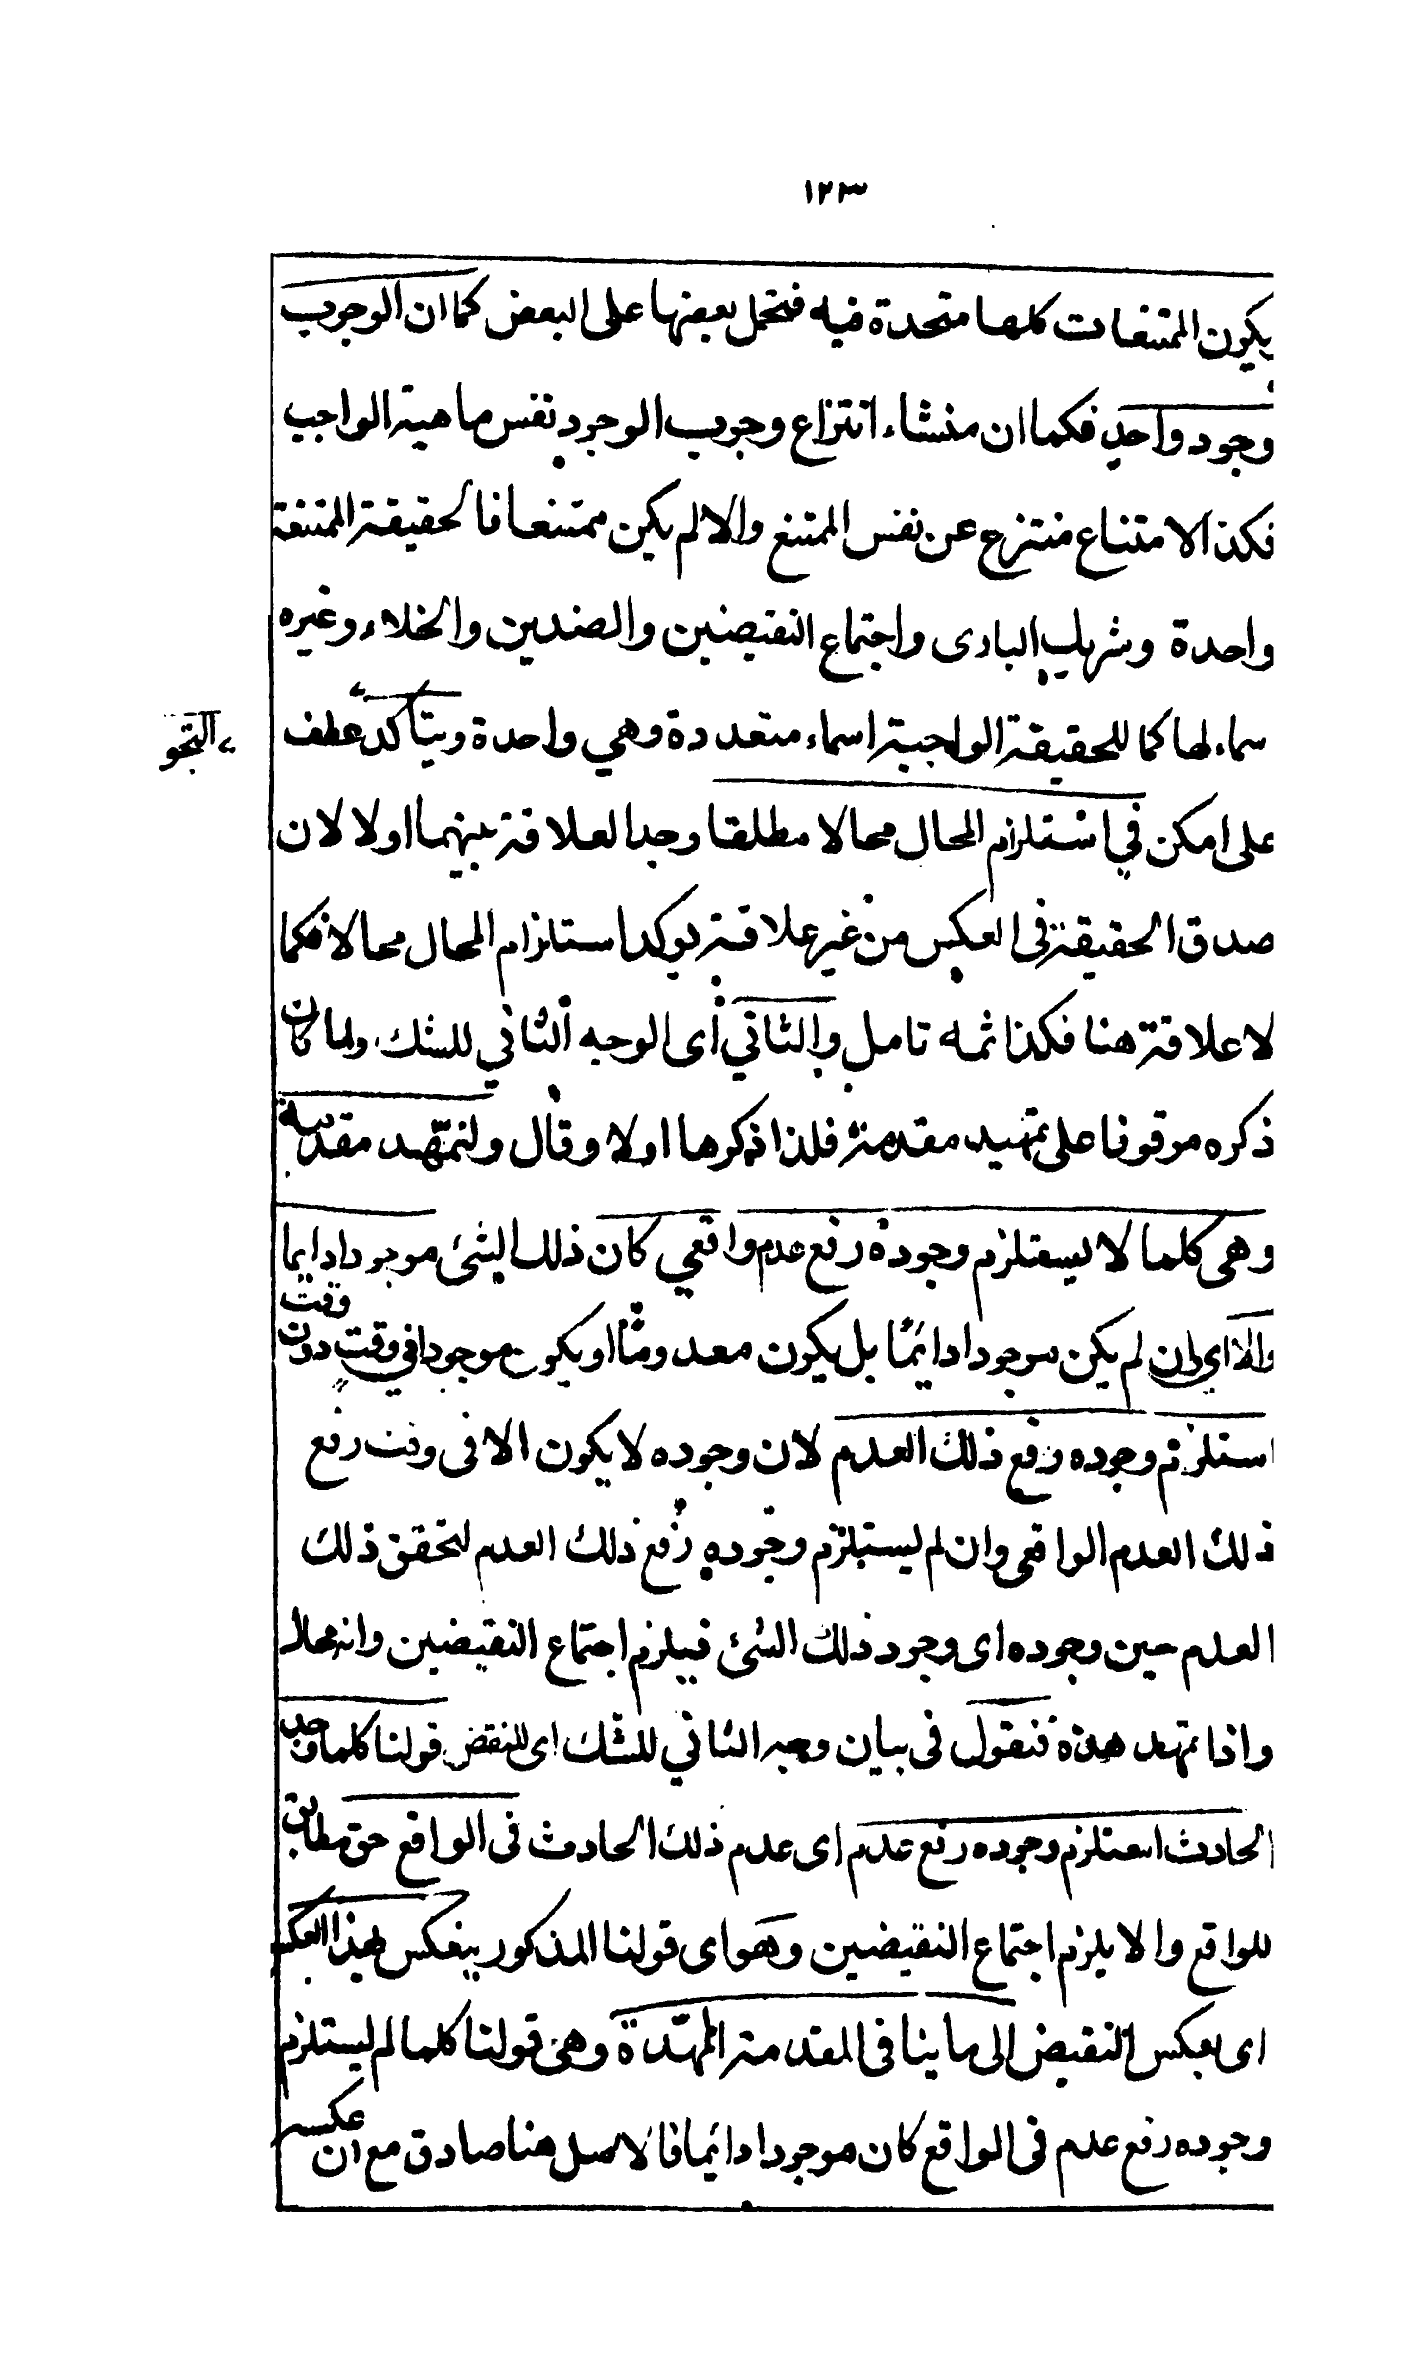 ١٢٣
يكون الممتنعات كلها متحدة فيه فتحمل بعضها على البعض كما ان الوجوب
وجود واحد فكما ان منشاء انتزاع وجوب الوجود نفس ماهية الواجب
فكذا الامتناع منتزع عن نفس الممتنع والا لم يكن ممتنعا فالحقيقة الممتنعة
واحدة وشريك البارى واجتماع النقيضين والضدين والخلاء وغيره
سماء لها كما للحقيقة الواجبية اسماء متعددة وهي واحدة ويتأكد عطف
التجو
على امكن في استلزام المحال محالا مطلقا وجد العلاقة بينهما اولا لان
صدق الحقيقة فى العكس من غير علاقة يوكد استلزام المحال محالا فكما
لا علاقة هنا فكذا ثمه تامل والثاني أى الوجه الثاني للشك ولما كان
ذكره موقوفا على تمهيد مقدمة فلذا ذكرها اولا وقال ولنمهّد مقدمة
وهى كلما لا يستلزم وجوده رفع عدم واقعي كان ذلك الشئ موجودا دايما
والا اي وان لم يكن موجودا دائمًا بل يكون معدومًا او يكون موجودا في وقت دون
وقت
استلزم وجوده رفع ذلك العدم لان وجوده لا يكون الا فى وقت رفع
ذلك العدم الواقعى وان لم يستلزم وجوده رفع ذلك العدم لتحقق ذلك
العدم حين وجوده اى وجود ذلك الشئ فيلزم اجتماع النقيضين وانه محال
واذا تمهد هذه فنقول فى بيان وجه الثاني للشك اى للنقض قولنا كلما وجد
الحادث استلزم وجوده رفع عدم اى عدم ذلك الحادث فى الواقع حق مطابق
للواقع والا يلزم اجتماع النقيضين وهو اى قولنا المذكور ينعكس بهذا العكس
اى بعكس النقيض الى ما ينا فى المقدمة الممهّدة وهى قولنا كلما لم يستلزم
وجوده رفع عدم فى الواقع كان موجودا دائما فالاصل هنا صادق مع ان عكسه